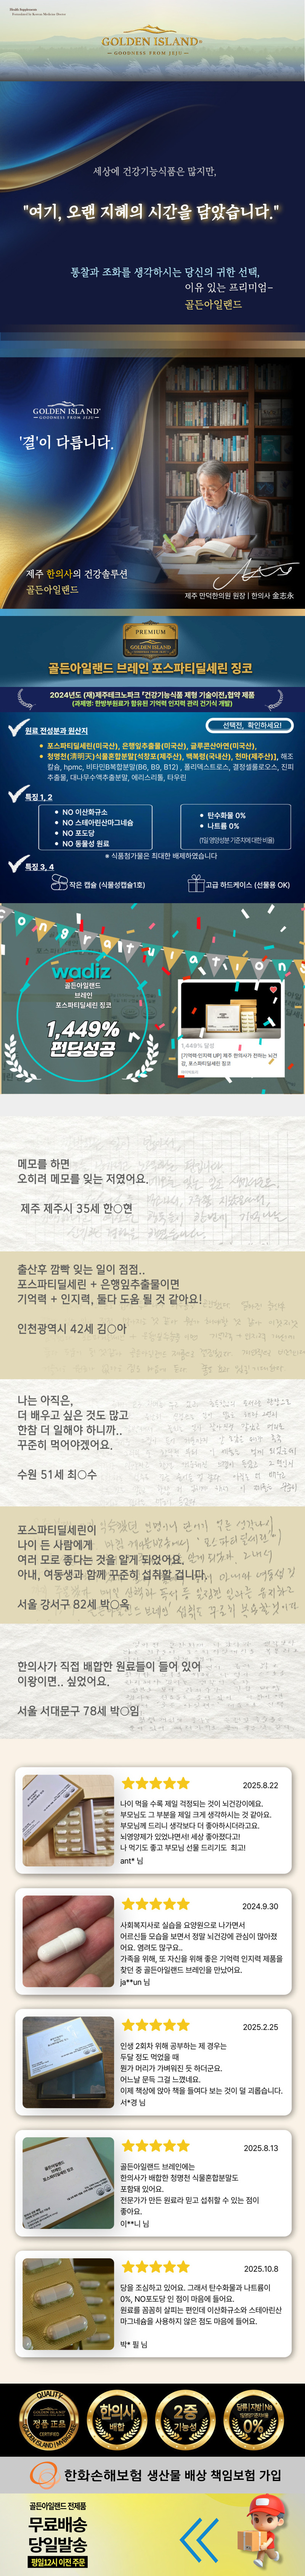 Health Supplements
Formulated by Korean Medicine Doctor
GOLDEN ISLAND®
GOODNESS FROM JEJU
세상에 건강기능식품은 많지만,
"여기, 오랜 지혜의 시간을 담았습니다."
통찰과 조화를 생각하시는 당신의 귀한 선택,
이유 있는 프리미엄-
골든아일랜드
GOLDEN ISLAND®
GOODNESS FROM JEJU
'결'이 다릅니다.
제주 한의사의 건강솔루션
골든아일랜드
제주 만덕한의원 원장 | 한의사 金志永
PREMIUM
GOLDEN ISLAND
골든아일랜드 브레인 포스파티딜세린 징코
2024년도 (재)제주테크노파크 「건강기능식품 제형 기술이전」협약 제품
(과제명: 한방부원료가 함유된 기억력 인지력 관리 건기식 개발)
선택전, 확인하세요!
원료 전성분과 원산지
포스파티딜세린(미국산), 은행잎추출물(미국산), 글루콘산아연(미국산),
청명천(淸明天)식물혼합분말[석창포(제주산), 백복령(국내산), 천마(제주산)], 해조칼슘, hpmc, 비타민B복합분말(B6, B9, B12) , 폴리덱스트로스, 결정셀룰로오스, 진피추출물, 대나무수액추출분말, 에리스리톨, 타우린
특징 1, 2
NO 이산화규소
NO 스테아린산마그네슘
NO 포도당
NO 동물성 원료
탄수화물 0%
나트륨 0%
(1일 영양성분 기준치에 대한 비율)
※ 식품첨가물은 최대한 배제하였습니다
특징 3, 4
작은 캡슐 (식물성캡슐1호)
고급 하드케이스 (선물용 OK)
congratulations
wadiz
골든아일랜드
브레인
포스파티딜세린 징코
1,449%
펀딩성공
1,449% 달성
[기억력·인지력 UP] 제주 한의사가 전하는 뇌건강, 포스파티딜세린 징코
메모를 하면
오히려 메모를 잊는 저였어요.
제주 제주시 35세 한○현
출산후 깜빡 잊는 일이 점점..
포스파티딜세린 + 은행잎추출물이면
기억력 + 인지력, 둘다 도움 될 것 같아요!
인천광역시 42세 김○아
나는 아직은,
더 배우고 싶은 것도 많고
한참 더 일해야 하니까..
꾸준히 먹어야겠어요.
수원 51세 최○수
포스파티딜세린이
나이 든 사람에게
여러 모로 좋다는 것을 알게 되었어요.
아내, 여동생과 함께 꾸준히 섭취할 겁니다.
서울 강서구 82세 박○옥
한의사가 직접 배합한 원료들이 들어 있어
이왕이면.. 싶었어요.
서울 서대문구 78세 박○임
2025.8.22
나이 먹을 수록 제일 걱정되는 것이 뇌건강이에요.
부모님도 그 부분을 제일 크게 생각하시는 것 같아요.
부모님께 드리니 생각보다 더 좋아하시더라고요.
뇌영양제가 있었냐면서! 세상 좋아졌다고!
나 먹기도 좋고 부모님 선물 드리기도 최고!
ant* 님
2024.9.30
사회복지사로 실습을 요양원으로 나가면서
어르신들 모습을 보면서 정말 뇌건강에 관심이 많아졌어요. 염려도 많구요..
가족을 위해, 또 자신을 위해 좋은 기억력 인지력 제품을 찾던 중 골든아일랜드 브레인을 만났어요.
ja**un 님
2025.2.25
인생 2회차 위해 공부하는 제 경우는
두달 정도 먹었을 때
뭔가 머리가 가벼워진 듯 하더군요.
어느날 문득 그걸 느꼈네요.
이제 책상에 앉아 책을 들여다 보는 것이 덜 괴롭습니다.
서*경 님
2025.8.13
골든아일랜드 브레인에는
한의사가 배합한 청명천 식물혼합분말도
포함돼 있어요.
전문가가 만든 원료라 믿고 섭취할 수 있는 점이
좋아요.
이**니 님
2025.10.8
당을 조심하고 있어요. 그래서 탄수화물과 나트륨이
0%, NO포도당 인 점이 마음에 들어요.
원료를 꼼꼼히 살피는 편인데 이산화규소와 스테아린산
마그네슘을 사용하지 않은 점도 마음에 들어요.
박* 필 님
QUALITY
정품 正品
CERTIFIED
한의사
배합
2중
기능성
당류|지방|Na
0%
한화손해보험 생산물 배상 책임보험 가입
골든아일랜드 전제품
무료배송
당일발송
평일12시 이전 주문